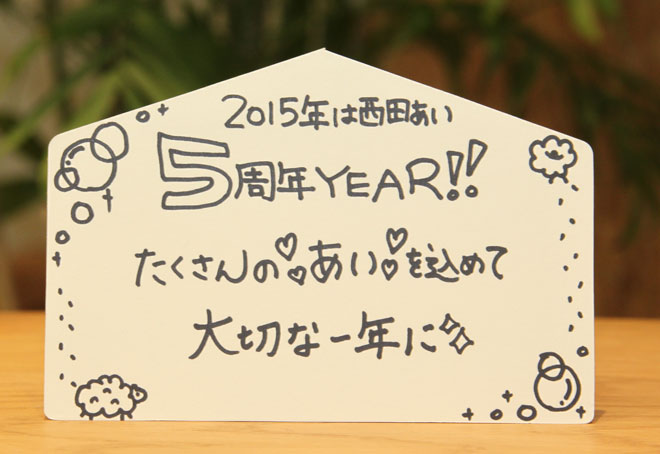 2015年は西田あい
5周年YEAR!!
たくさんの♡あい♡を込めて
大切な一年に